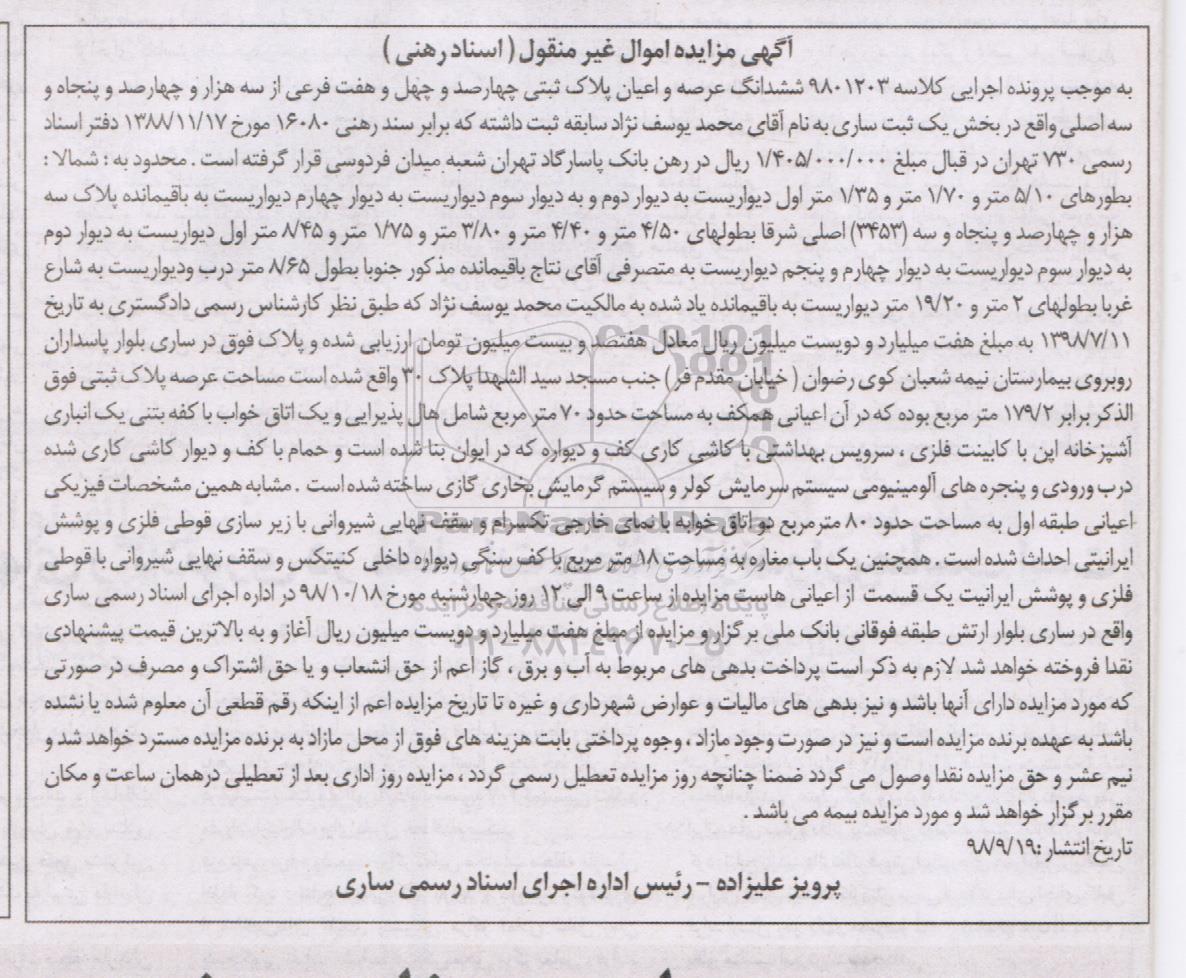 آگهی مزایده اموال غیر منقول ( اسناد رهنی )
به موجب پرونده اجرایی کلاسه ۹۸۰۱۲۰۳ ششدانگ عرصه و اعیان پلاک ثبتی چهارصد و چهل و هفت فرعی از سه هزار و چهارصد و پنجاه و
سه اصلی واقع در بخش یک ثبت ساری به نام آقای محمد یوسف نژاد سابقه ثبت داشته که برابر سند رهنی ۱۶۰۸۰ مورخ ۱۳۸۸/۱۱/۱۷ دفتر اسناد
رسمی ۷۳۰ تهران در قبال مبلغ ۱/۴۰۵/۰۰۰/۰۰۰ ریال در رهن بانک پاسارگاد تهران شعبه میدان فردوسی قرار گرفته است . محدود به : شمالا :
بطورهای ۵/۱۰ متر و ۱/۷۰ متر و ۱/۳۵ متر اول دیواریست به دیوار دوم و به دیوار سوم دیواریست به دیوار چهارم دیواریست به باقیمانده پلاک سه
هزار و چهارصد و پنجاه و سه (۳۴۵۳) اصلی شرقا بطولهای ۴/۵۰ متر و ۴/۴۰ متر و ۳/۸۰ متر و ۱/۷۵ متر و ۸/۴۵ متر اول دیواریست به دیوار دوم
به دیوار سوم دیواریست به دیوار چهارم و پنجم دیواریست به متصرفی آقای نتاج باقیمانده مذکور جنوبا بطول ۸/۶۵ متر درب ودیواریست به شارع
غربا بطولهای ۲ متر و ۱۹/۲۰ متر دیواریست به باقیمانده یاد شده به مالکیت محمد یوسف نژاد که طبق نظر کارشناس رسمی دادگستری به تاریخ
۱۳۹۸/۷/۱۱ به مبلغ هفت میلیارد و دویست میلیون ریال معادل هفتصد و بیست میلیون تومان ارزیابی شده و پلاک فوق در ساری بلوار پاسداران
روبروی بیمارستان نیمه شعبان کوی رضوان ( خیابان مقدم فر ) جنب مسجد سید الشهدا پلاک ۳۰ واقع شده است مساحت عرصه پلاک ثبتی فوق
الذکر برابر ۱۷۹/۲ متر مربع بوده که در آن اعیانی همکف به مساحت حدود ۷۰ متر مربع شامل هال پذیرایی و یک اتاق خواب با کفه بتنی یک انباری
آشپزخانه اپن با کابینت فلزی ، سرویس بهداشتی با کاشی کاری کف و دیواره که در ایوان بنا شده است و حمام با کف و دیوار کاشی کاری شده
درب ورودی و پنجره های آلومینیومی سیستم سرمایش کولر و سیستم گرمایش بخاری گازی ساخته شده است . مشابه همین مشخصات فیزیکی
اعیانی طبقه اول به مساحت حدود ۸۰ متر مربع دو اتاق خوابه با نمای خارجی تکسرام و سقف نهایی شیروانی با زیر سازی قوطی فلزی و پوشش
ایرانیتی احداث شده است . همچنین یک باب مغازه به مساحت ۱۸ متر مربع با کف سنگی دیواره داخلی کنیتکس و سقف نهایی شیروانی با قوطی
فلزی و پوشش ایرانیت یک قسمت از اعیانی هاست مزایده از ساعت ۹ الی ۱۲ روز چهارشنبه مورخ ۹۸/۱۰/۱۸ در اداره اجرای اسناد رسمی ساری
واقع در ساری بلوار ارتش طبقه فوقانی بانک ملی برگزار و مزایده از مبلغ هفت میلیارد و دویست میلیون ریال آغاز و به بالاترین قیمت پیشنهادی
نقدا فروخته خواهد شد لازم به ذکر است پرداخت بدهی های مربوط به آب و برق ، گاز اعم از حق انشعاب و یا حق اشتراک و مصرف در صورتی
که مورد مزایده دارای آنها باشد و نیز بدهی های مالیات و عوارض شهرداری و غیره تا تاریخ مزایده اعم از اینکه رقم قطعی آن معلوم شده یا نشده
باشد به عهده برنده مزایده است و نیز در صورت وجود مازاد ، وجوه پرداختی بابت هزینه های فوق از محل مازاد به برنده مزایده مسترد خواهد شد و
نیم عشر و حق مزایده نقدا وصول می گردد ضمنا چنانچه روز مزایده تعطیل رسمی گردد ، مزایده روز اداری بعد از تعطیلی درهمان ساعت و مکان
مقرر برگزار خواهد شد و مورد مزایده بیمه می باشد .
تاریخ انتشار :۹۸/۹/۱۹
پرویز علیزاده - رئیس اداره اجرای اسناد رسمی ساری
ParsNamadData
پایگاه اطلاع رسانی مناقصه و مزایده
۰۲۱-۸۸۳۴۹۶۷۰-۵